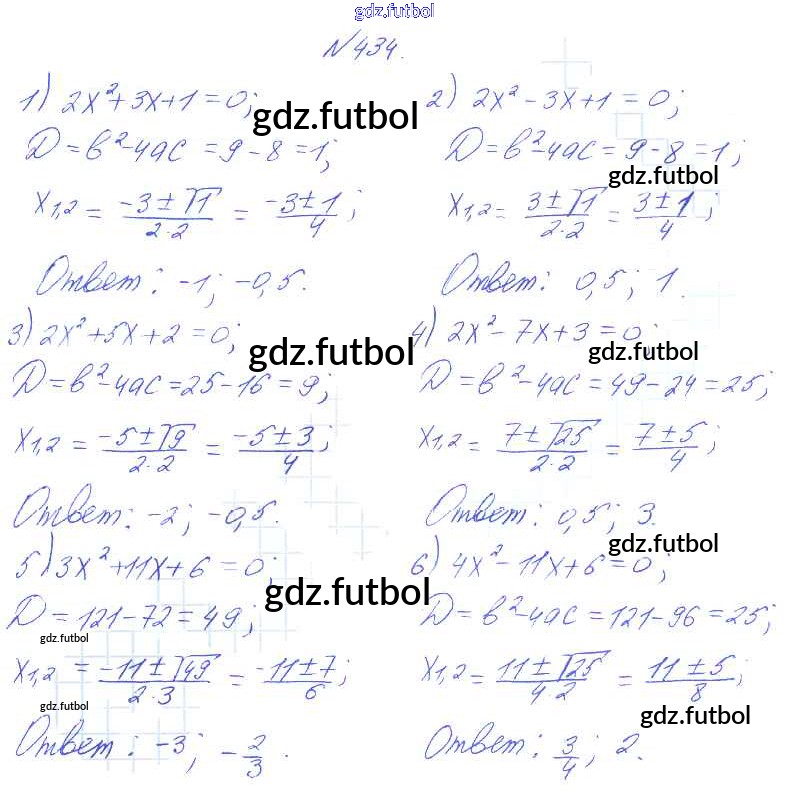 gdz.futbol
№434.
1) 2x²+3x+1=0;
gdz.futbol
D=b²-4ac=9-8=1;
x₁,₂ = (-3±√1)/(2·2) = (-3±1)/4;
Ответ: -1; -0,5.
2) 2x²-3x+1=0;
D=b²-4ac=9-8=1;
gdz.futbol
x₁,₂ = (3±√1)/(2·2) = (3±1)/4;
Ответ: 0,5; 1.
3) 2x²+5x+2=0;
gdz.futbol
D=b²-4ac=25-16=9;
x₁,₂ = (-5±√9)/(2·2) = (-5±3)/4;
Ответ: -2; -0,5.
4) 2x²-7x+3=0;
gdz.futbol
D=b²-4ac=49-24=25;
x₁,₂ = (7±√25)/(2·2) = (7±5)/4;
Ответ: 0,5; 3.
5) 3x²+11x+6=0;
gdz.futbol
D=121-72=49;
gdz.futbol
x₁,₂ = (-11±√49)/(2·3) = (-11±7)/6;
gdz.futbol
Ответ: -3; -2/3.
gdz.futbol
6) 4x²-11x+6=0;
D=b²-4ac=121-96=25;
x₁,₂ = (11±√25)/(4·2) = (11±5)/8;
gdz.futbol
Ответ: 3/4; 2.